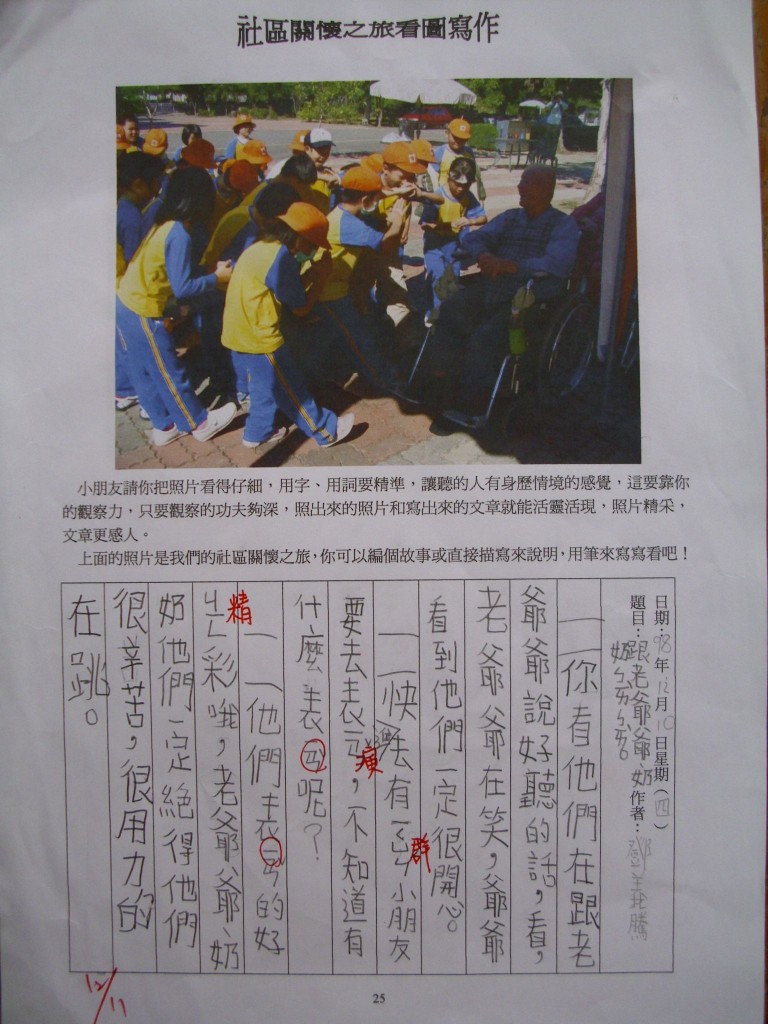 社區關懷之旅看圖寫作
小朋友請你把照片看得仔細，用字、用詞要精準，讓聽的人有身歷情境的感覺，這要靠你
的觀察力，只要觀察的功夫夠深，照出來的照片和寫出來的文章就能活靈活現，照片精采，
文章更感人。
上面的照片是我們的社區關懷之旅，你可以編個故事或直接描寫來說明，用筆來寫寫看吧！
日期：98年12月10日星期（四）
題目：跟老爺爺、奶奶 作者：
你看他們在跟老
爺爺說好聽的話，看，
老爺爺在笑，爺爺
看到他們一定很開心。
快去有一ㄑㄩㄣˊ群小朋友
要去表ㄧㄢˇ，不知道有
什麼表ㄧㄢˇ呢？
他們表ㄧㄢˇ的好
精彩哦，老爺爺、奶
奶他們一定絕得他們
很辛苦，很用力的
在跳。
12/11
25